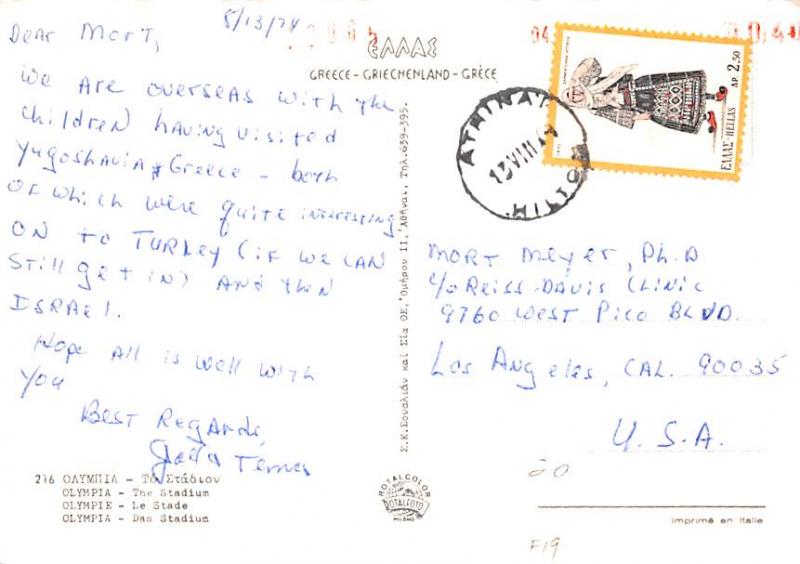 8/13/74
Dear Mort,
We are overseas with the
children having visited
Yugoslavia & Greece - both
of which were quite interesting
on to Turkey (if we can
still get in) and then
Israel.
Hope all is well with
you
Best Regards,
ΕΛΛΑΣ
GREECE - GRIECHENLAND - GRÈCE
ATHINAI
13 VIII 74
ΔΡ. 2,50
ΕΛΛΑΣ-HELLAS
Mort Meyer, Ph.D.
c/o Reiss-Davis Clinic
9760 West Pico Blvd.
Los Angeles, Cal. 90035
U.S.A.
216 ΟΛΥΜΠΙΑ - Τὸ Στάδιον
OLYMPIA - The Stadium
OLYMPIE - Le Stade
OLYMPIA - Das Stadium
ROTALCOLOR
ROTALFOTO
MILANO
20
Imprimé en Italie
F19